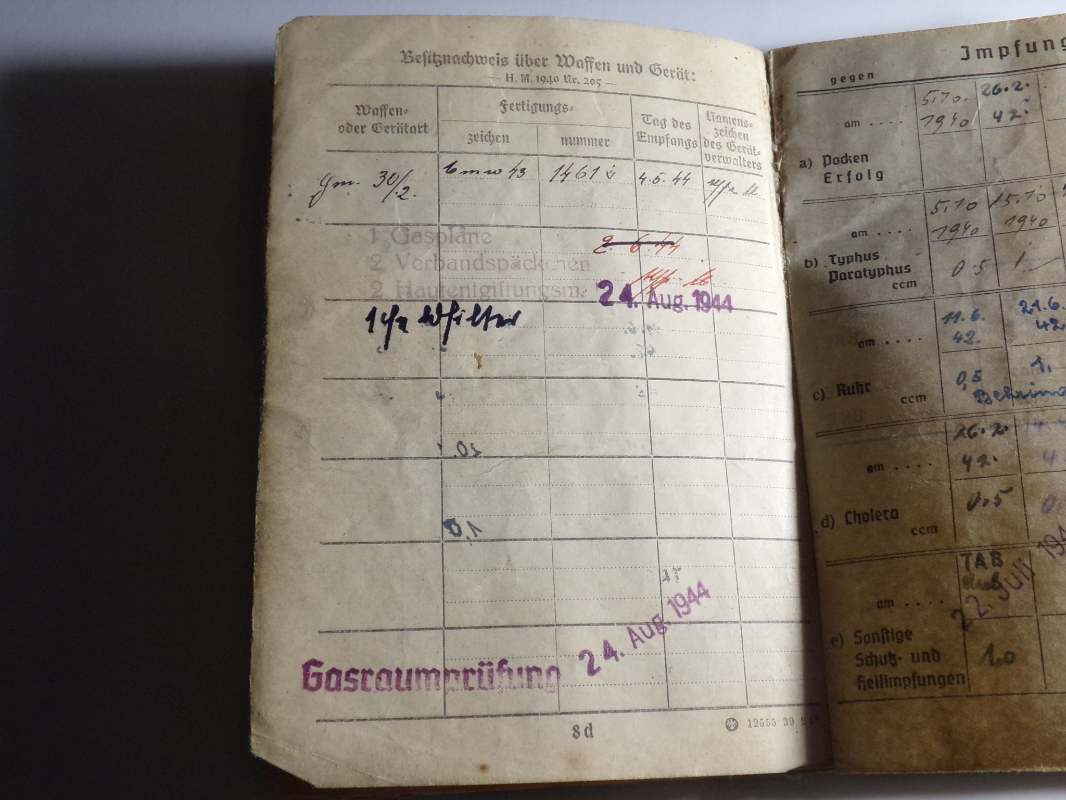 Besitznachweis über Waffen und Gerät:
— H. M. 1940 Nr. 205 —
Waffen-
oder Gerätart
Fertigungs-
zeichen
nummer
Tag des
Empfangs
Namens-
zeichen
des Gerät-
verwalters
Gm. 30/2. bmw 43 1461 4.5.44
1 Gasplane
2 Verbandspäckchen
2 Hautentgiftungsm.
2.6.44
24. Aug. 1944
Gasraumprüfung 24. Aug. 1944
8d
12555 39
Impfung
gegen
am . . . . 5.10. 1940 26.2. 42.
a) Pocken
Erfolg
am . . . . 5.10 1940 15.10 1940
b) Typhus
Paratyphus
ccm 0.5 1.
am . . . . 11.6. 42. 21.6. 42
c) Ruhr
ccm 0,5 1,
am . . . . 26.2. 42.
d) Cholera
ccm 0.5
am . . . . TAB 22. Juli 194
e) Sonstige
Schutz- und
Heilimpfungen 1.0